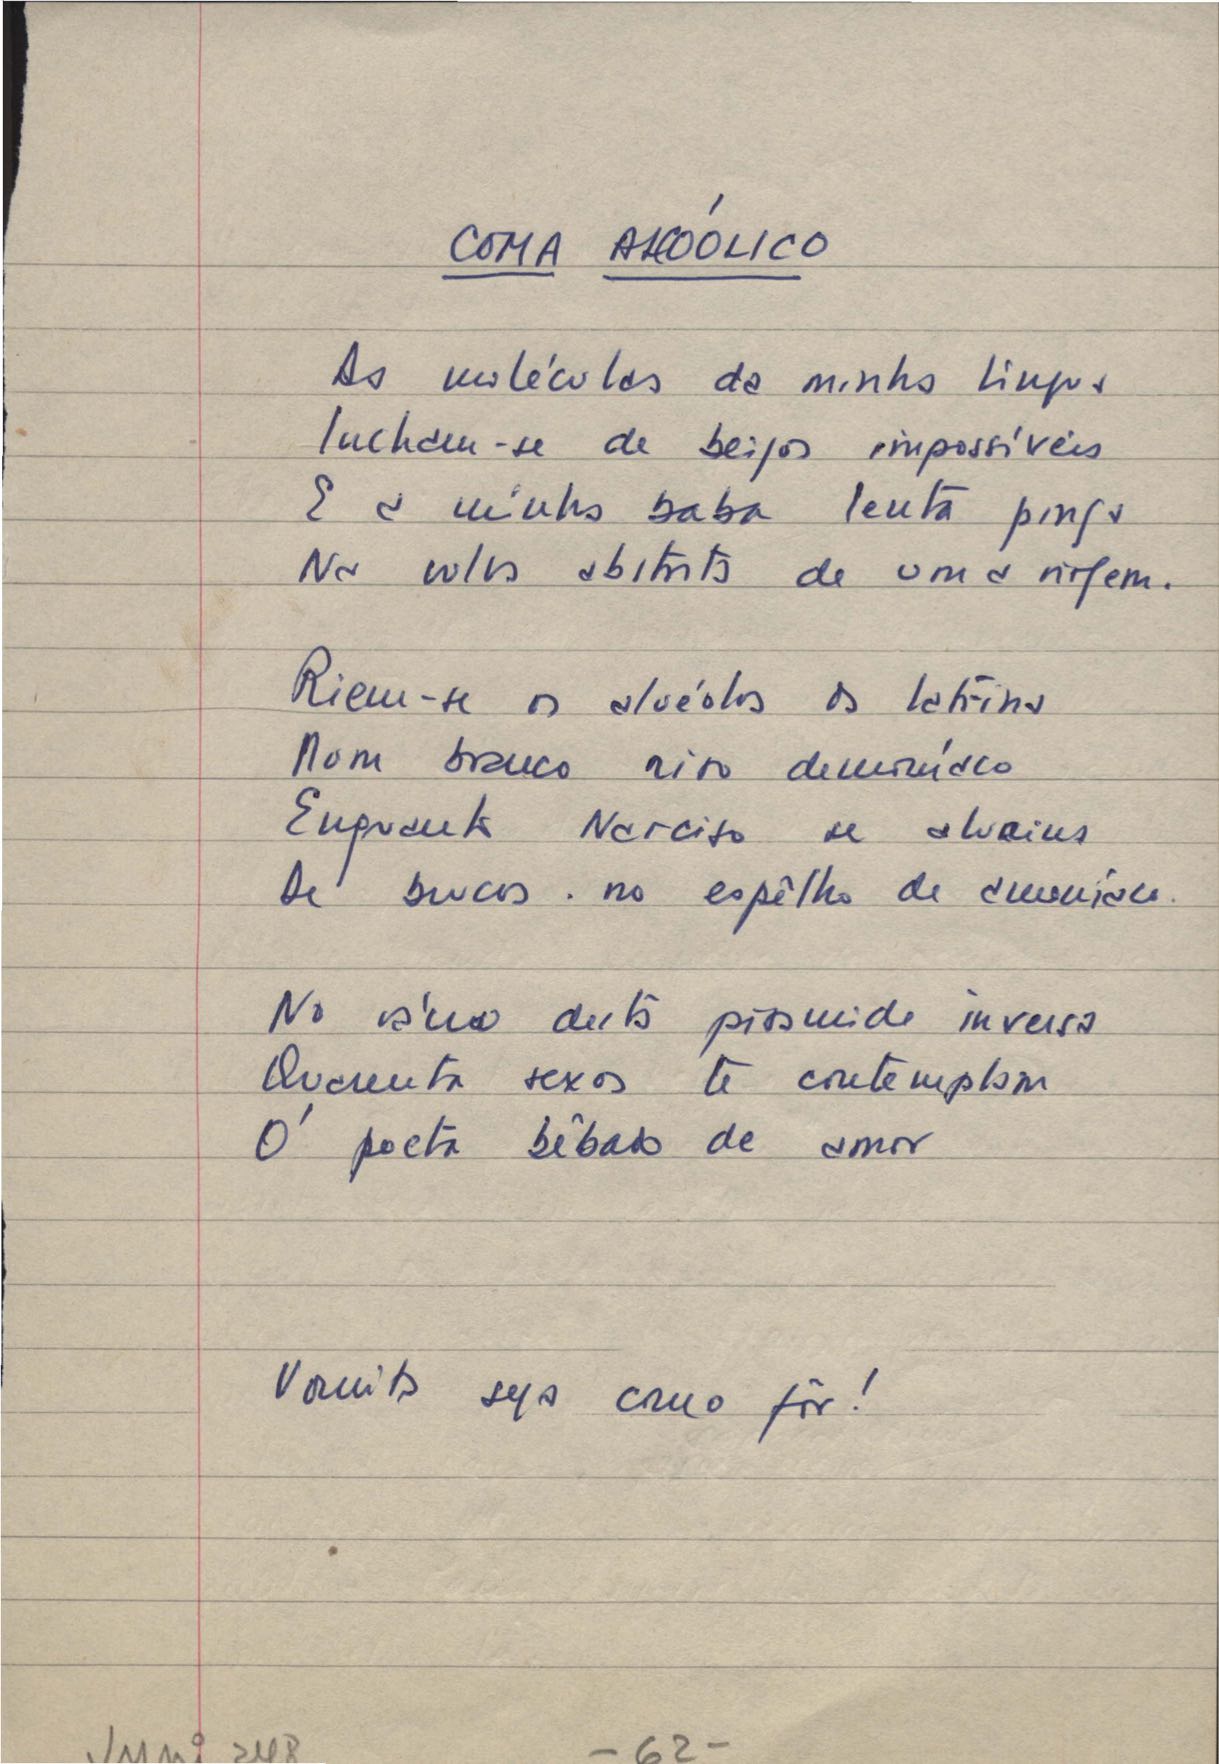 COMA ALCOÓLICO
As moléculas da minha língua
Incham-se de beijos impossíveis
E a minha baba lenta pinga
Na abstrata de uma virgem.
Riem-se os alvéolos da latrina
Num branco riso demoníaco
Enquanto Narciso se alucina
De bruços no espêlho de amoníaco.
No vértice desta pirâmide inversa
Quarenta sexos te contemplam
Ó poeta bêbado de amor
Vomita seja como fôr!
-62-